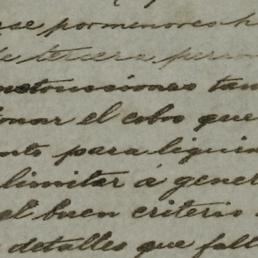 se pormenores h
de tercera perso
nstrucciones tam
onar el cobro que
nto para liquid
limitar á gener
el buen criterio
detalles que fal